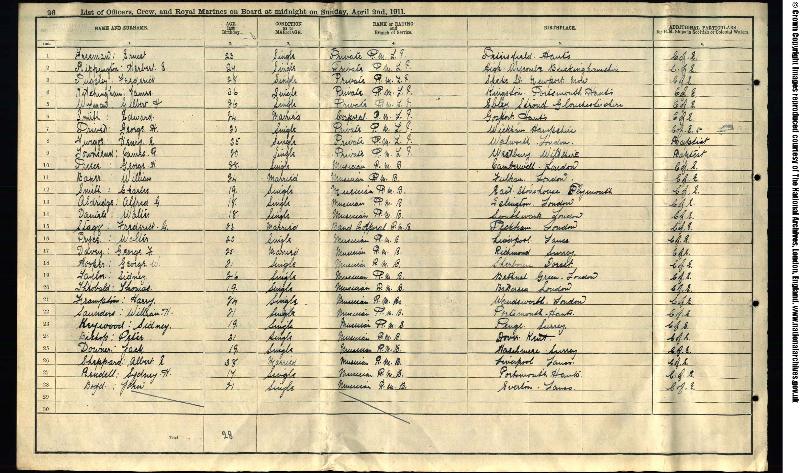 26 List of Officers, Crew, and Royal Marines on Board at midnight on Sunday, April 2nd, 1911.
NAME AND SURNAME. AGE last Birthday. CONDITION as to MARRIAGE. RANK or RATING and Branch of Service. BIRTHPLACE. ADDITIONAL PARTICULARS for H.M. Ships in Scottish or Colonial Waters.
1 Ernest 23 Single Private R.M.L.I. Hants C of E
2 Herbert E Single Private R.M.L.I. High Wycombe Buckinghamshire C of E
3 Frederick 28 Single Private R.M.L.I. Newport C of E
4 James 26 Single Private R.M.L.I. Kingston Portsmouth Hants C of E
5 Gilbert 26 Single Private R.M.L.I. Ebley Stroud Gloucestershire C of E
6 Smith: Edward 24 Married Corporal R.M.L.I. Gosport Hants C of E
7 George H. Single Private R.M.L.I. Wickham Hampshire C of E
8 Ernest 25 Single Private R.M.L.I. Walworth London Baptist
9 Townsend: James G. 20 Single Private R.M.L.I. Westbury Wiltshire Baptist
10 George 28 Single Musician R.M.B. Camberwell London C of E
11 William 24 Married Musician R.M.B. Fulham London C of E
12 Smith: Charles 19 Single Musician R.M.B. East Stonehouse Plymouth C of E
13 Aldridge: Alfred G 18 Single Musician R.M.B. Islington London C of E
14 Daniels: Walter 18 Single Musician R.M.B. Southwark London C of E
15 Frederick G. Married Band Corporal R.M.B. Peckham London C of E
16 Walter 22 Single Musician R.M.B. Liverpool Lancs C of E
17 George F 25 Married Musician R.M.B. Richmond Surrey C of E
18 Hooper: George W. Single Musician R.M.B. Sherborne Dorset C of E
19 Taylor: Sidney Single Musician R.M.B. Bethnal Green London C of E
20 Theobald: Thomas 19 Single Musician R.M.B. Battersea London C of E
21 Frampton: Harry Single Musician R.M.B. Wandsworth London C of E
22 Saunders: William H. 21 Single Musician R.M.B. Portsmouth Hants C of E
23 Heywood: Sidney 19 Single Musician R.M.B. Penge Surrey C of E
24 Bishop: Peter 21 Single Musician R.M.B. Dover Kent C of E
25 Downer: Jack 19 Single Musician R.M.B. Haslemere Surrey C of E
26 Sheppard: Albert E 38 Married Musician R.M.B. Liverpool Lancs C of E
27 Rendell: Sydney H. 17 Single Musician R.M.B. Portsmouth Hants C of E
28 Boyd: John 21 Single Musician R.M.B. Everton Lancs C of E
29
30
Total 28
© Crown Copyright Images reproduced courtesy of The National Archives, London, England. www.nationalarchives.gov.uk